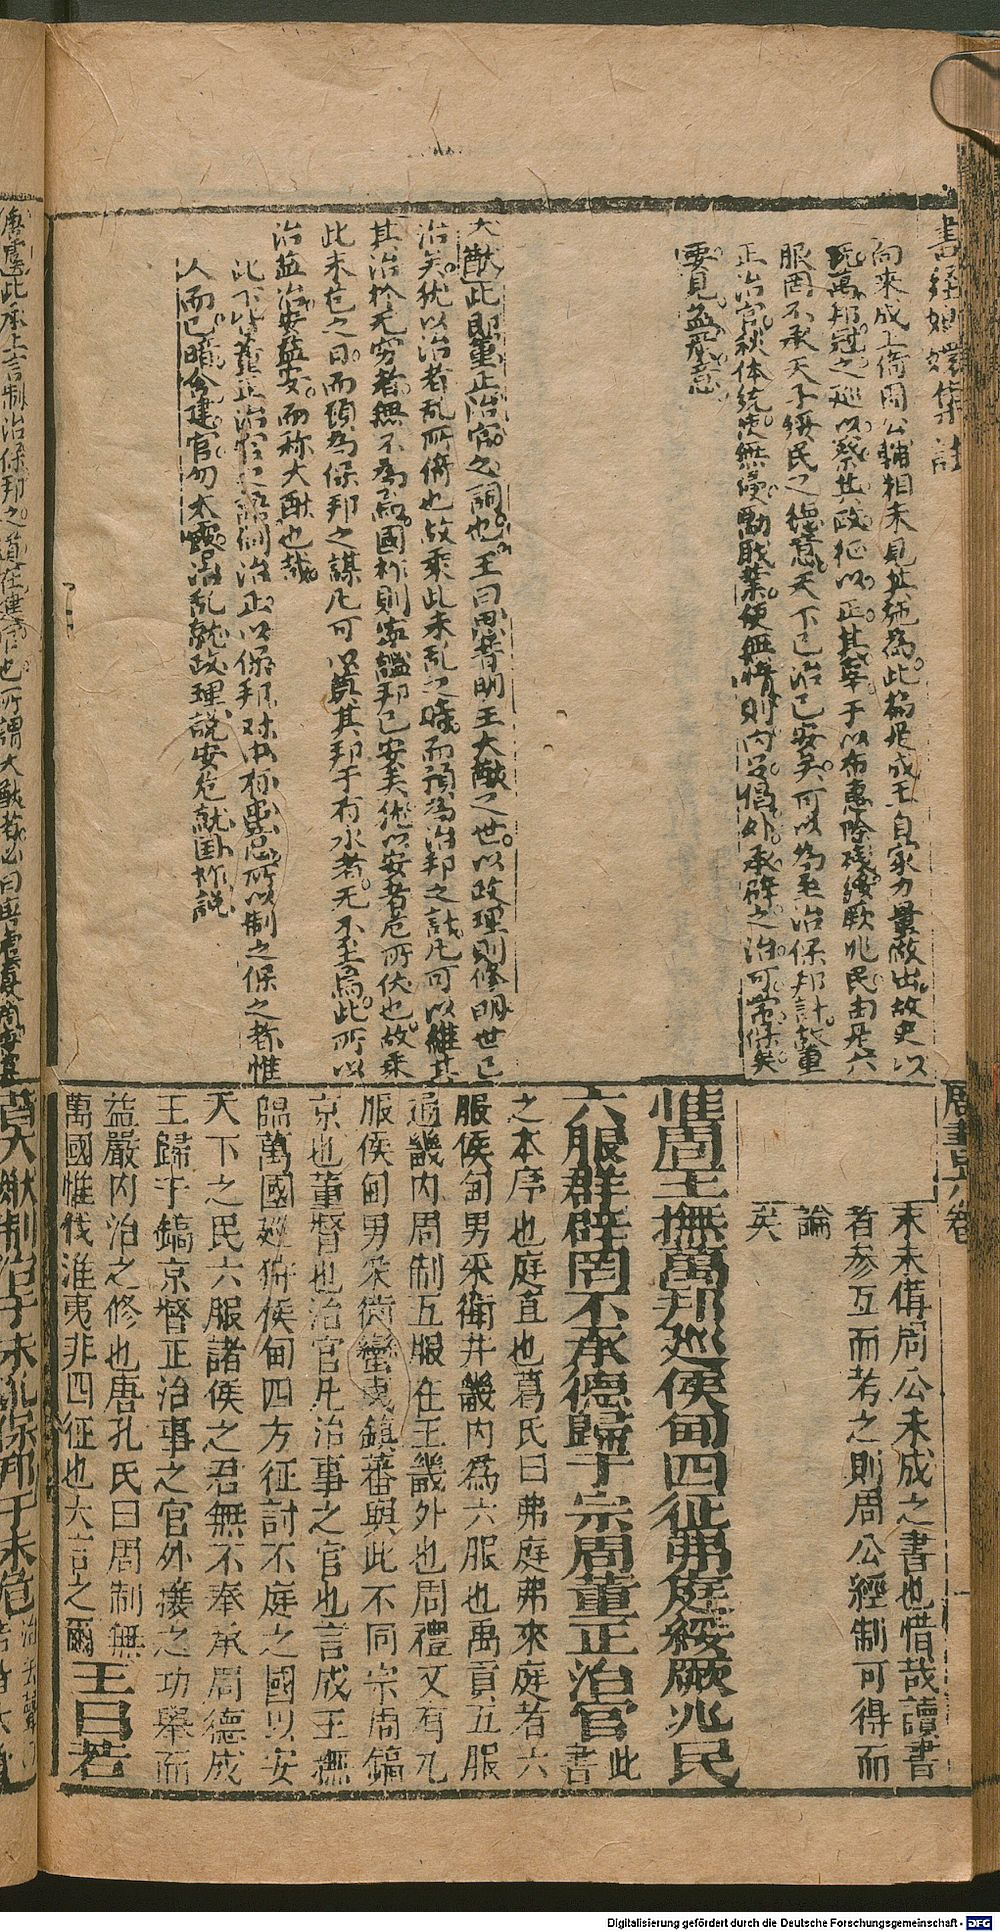 向來成王倚周公輔相未見其施為此篇是成王自家力量做出故史以
撫萬邦冠之巡以察其政征以正其辜于以布惠除殘綏厥兆民由是六
服罔不承天子綏民之德意天下已治已安矣可以為至治保邦計故董
正治官秩体統使無侵勵職業使無惰則內受倡外承辟之治可常保矣
要見益嚴意
大猷此即董正治官之詞也王曰思昔明王大猷之世以政理則修明世已
治矣犹以治者乱所倚也故乘此未乱之時而預為治邦之計凡可以維其
其治於无穷者無不為焉國祚則寧謐邦已安矣犹以安者危所伏也故乘
此未危之日而預為保邦之謀凡可以奠其邦于有永者无不至焉此所以
治益治安益安而称大猷也哉
此下皆董正治官之辭制治正以保邦对出称所以制之保之者惟
人而已暗含建官勿太露治乱就政理說安危就国祚說
唐虞此承上言制治保邦之道在建官也所謂大猷若必曰唐虞夏周
末未備周公未成之書也惜哉讀書
者參互而考之則周公經制可得而
論
矣
惟周王撫萬邦廵侯甸四征弗庭綏厥兆民
六服群辟罔不承德歸于宗周董正治官此書
之本序也庭直也葛氏曰弗庭弗來庭者六
服侯甸男采衛并畿內為六服也禹貢五服
通畿內周制五服在王畿外也周禮又有九
服侯甸男采衛蠻夷鎮蕃與此不同宗周鎬
京也董督也治官凡治事之官也言成王撫
臨萬國廵狩侯甸四方征討不庭之國以安
天下之民六服諸侯之君無不奉承周德成
王歸于鎬京督正治事之官外攘之功舉而
益嚴內治之修也唐孔氏曰周制無
萬國惟伐淮夷非四征也大言之爾王曰若
昔大猷制治于未亂保邦于未危
Digitalisierung gefördert durch die Deutsche Forschungsgemeinschaft - DFG